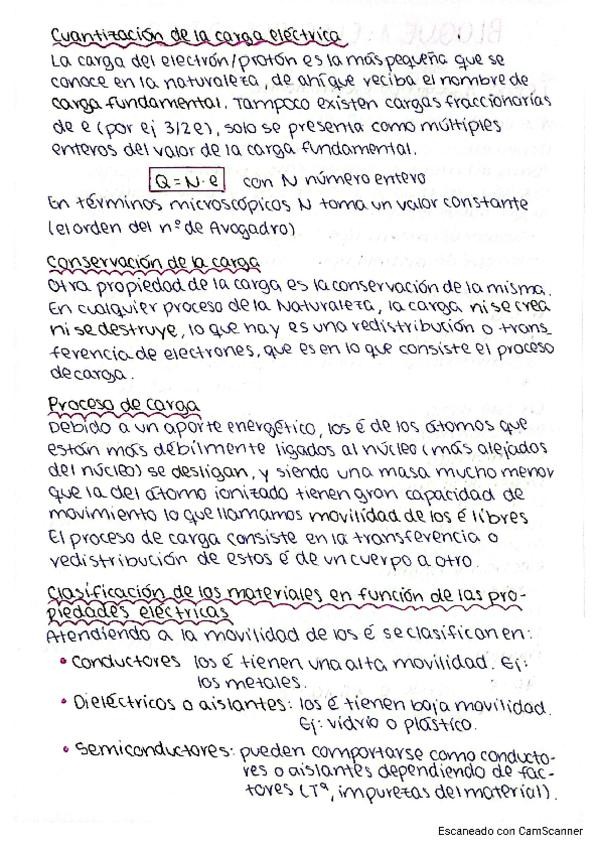 Cuantización de la carga eléctrica
La carga del electrón/protón es la más pequeña que se
conoce en la naturaleza, de ahí que reciba el nombre de
carga fundamental. Tampoco existen cargas fraccionarias
de e (por ej 3/2e), solo se presenta como múltiples
enteros del valor de la carga fundamental.
Q = N·e con N número entero
En términos microscópicos N toma un valor constante
(el orden del nº de Avogadro)
Conservación de la carga
Otra propiedad de la carga es la conservación de la misma.
En cualquier proceso de la Naturaleza, la carga ni se crea
ni se destruye, lo que hay es una redistribución o trans_
ferencia de electrones, que es en lo que consiste el proceso
de carga.
Proceso de carga
Debido a un aporte energético, los é de los átomos que
están más débilmente ligados al núcleo (más alejados
del núcleo) se desligan, y siendo una masa mucho menor
que la del átomo ionizado tienen gran capacidad de
movimiento lo que llamamos movilidad de los é libres
El proceso de carga consiste en la transferencia o
redistribución de estos é de un cuerpo a otro.
Clasificación de los materiales en función de las pro-
piedades eléctricas
Atendiendo a la movilidad de los é se clasifican en:
• Conductores los é tienen una alta movilidad. Ej:
los metales.
• Dieléctricos o aislantes: los é tienen baja movilidad.
Ej: vidrio o plástico.
• Semiconductores: pueden comportarse como conducto-
res o aislantes dependiendo de fac-
tores (Tª, impurezas del material).
Escaneado con CamScanner